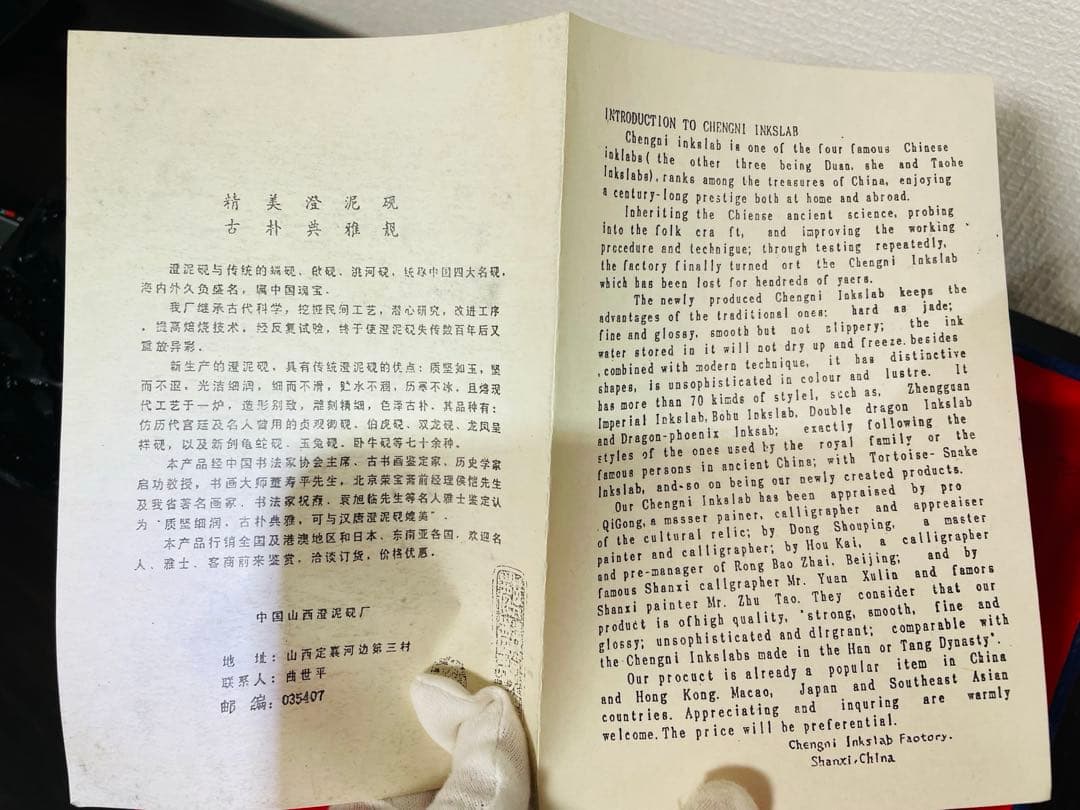 精美澄泥砚
古朴典雅靓
澄泥砚与传统的端砚、歙砚、洮河砚,统称中国四大名砚,
海内外久负盛名,属中国瑰宝。
我厂继承古代科学,挖掘民间工艺,潜心研究,改进工序
,提高焙烧技术。经反复试验,终于使澄泥砚失传数百年后又
重放异彩。
新生产的澄泥砚,具有传统澄泥砚的优点:质坚如玉,坚
而不涩,光洁细润,细而不滑,贮水不涸,历寒不冰,且熔现
代工艺于一炉,造形别致,雕刻精细,色泽古朴。其品种有:
仿历代宫廷及名人曾用的贞观御砚、伯虎砚、双龙砚、龙凤呈
祥砚,以及新创龟蛇砚、玉兔砚、卧牛砚等七十余种。
本产品经中国书法家协会主席、古书画鉴定家、历史学家
启功教授,书画大师董寿平先生,北京荣宝斋前经理侯恺先生
及我省著名画家、书法家祝焘、袁旭临先生等名人雅士鉴定认
为“质坚细润,古朴典雅,可与汉唐澄泥砚媲美”.
本产品行销全国及港澳地区和日本、东南亚各国,欢迎名
人、雅士、客商前来鉴赏,洽谈订货,价格优惠.
中国山西澄泥砚厂
地 址:山西定襄河边第三村
联系人:曲世平
邮 编:035407
INTRODUCTION TO CHENGNI INKSLAB
Chengni inkslab is one of the four famous Chinese
inklabs( the other three being Duan, she and Taohe
Inkslabs), ranks among the treasures of China, enjoying
a century-long prestige both at home and abroad.
Inheriting the Chiense ancient science, probing
into the folk cra ft, and improving the working
prccedure and technigue; through testing repeatedly,
the factory finally turned ort the Chengni Inkslab
which has been lost for hendreds of yaers.
The newly produced Chengni Inkslab keeps the
advantages of the traditional ones: hard as jade;
fine and glossy, smooth but not slippery; the ink
water stored in it will not dry up and freeze. besides
,combined with modern technique, it has distinctive
shapes, is unsophisticated in colour and lustre. It
has more than 70 kimds of stylel, scch as, Zhengguan
Imperial Inkslab, Bohu Inkslab, Double dragon Inkslab
and Dragon-phoenix Inksab; exactly following the
styles of the ones used by the royal family or the
famous persons in ancient China; with Tortoise- Snake
Inkslab, and-so on being our newly created products.
Our Chengni Inkslab has been appraised by pro
.QiGong, a masser painer, calligrapher and appreaiser
of the cultural relic; by Dong Shouping, a master
painter and calligrapher; by Hou Kai, a calligrapher
and pre-manager of Rong Bao Zhai, Beijing; and by
famous Shanxi callgrapher Mr. Yuan Xulin and famors
Shanxi painter Mr. Zhu Tao. They consider that our
product is ofhigh quality, "strong, smooth, fine and
glossy; unsophisticated and dlrgrant; comparable with
the Chengni Inkslabs made in the Han or Tang Dynasty".
Our procuct is already a popular item in China
and Hong Kong. Macao, Japan and Southeast Asian
countries. Appreciating and inquring are warmly
welcome. The price will be preferential.
Chengni Inkslab Factory.
Shanxi, China